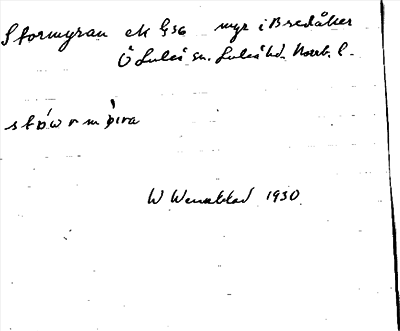 Stormyran ek G56 myr i Bredåker
Ö Luleå sn. Luleå hd. Norrb. l.
W Wennblad 1930